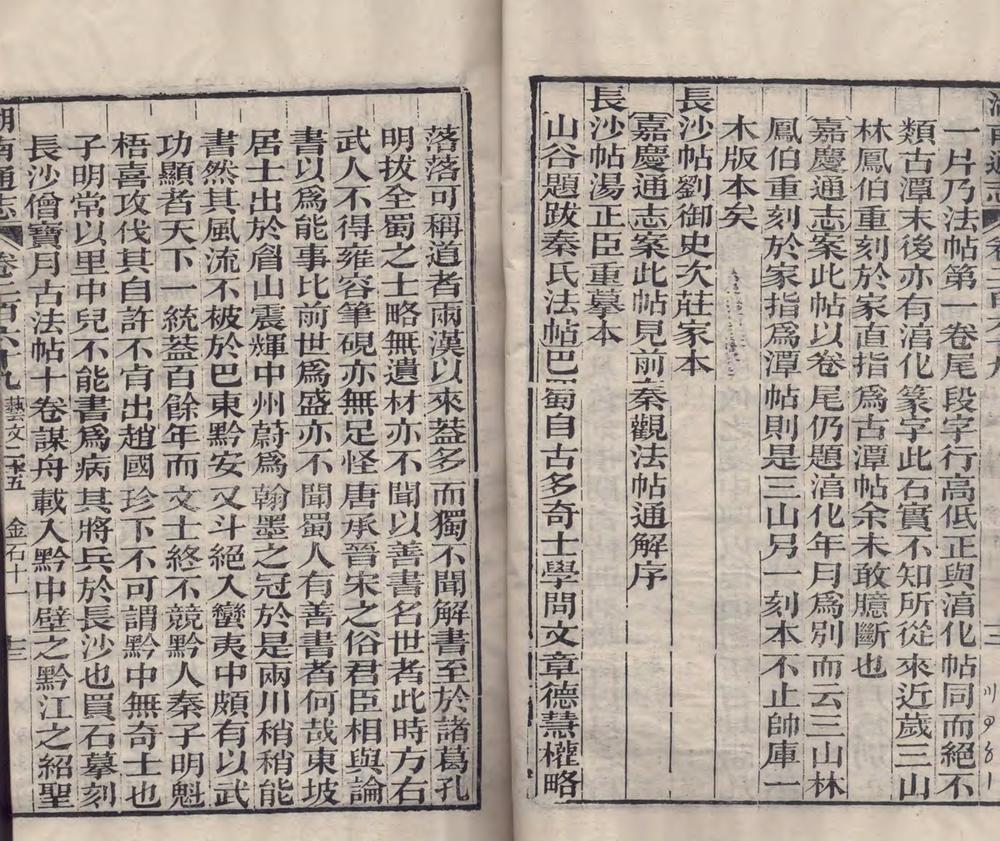 一片乃法帖第一卷尾段字行高低正與湻化帖同而絕不
類古潭末後亦有湻化篆字此石實不知所從來近歲三山
林鳳伯重刻於家直指爲古潭帖余未敢臆斷也
嘉慶通志案此帖以卷尾仍題湻化年月爲別而云三山林
鳳伯重刻於家指爲潭帖則是三山另一刻本不止帥庫一
木版本矣
長沙帖劉御史次莊家本
嘉慶通志案此帖見前秦觀法帖通解序
長沙帖湯正臣重摹本
山谷題跋秦氏法帖巴蜀自古多奇士學問文章德慧權略
落落可稱道者兩漢以來葢多而獨不聞解書至於諸葛孔
明拔全蜀之士略無遺材亦不聞以善書名世者此時方右
武人不得雍容筆硯亦無足怪唐承晉宋之俗君臣相與論
書以爲能事比前世爲盛亦不聞蜀人有善書者何哉東坡
居士出於眉山震輝中州蔚爲翰墨之冠於是兩川稍稍能
書然其風流不柀於巴東黔安又斗絕入蠻夷中頗有以武
功顯者天下一統葢百餘年而文士終不競黔人秦子明魁
梧喜攻伐其自許不肯出趙國珍下不可謂黔中無奇士也
子明常以里中兒不能書爲病其將兵於長沙也買石摹刻
長沙僧寶月古法帖十卷謀舟載入黔中壁之黔江之紹聖
湖南通志 卷二百六十九 藝文二十五 金石十一 三